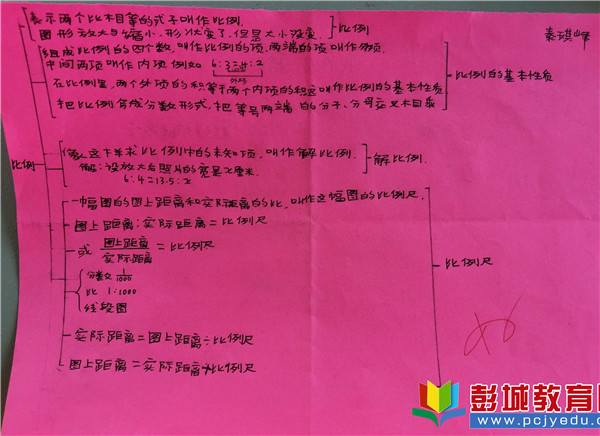 表示两个比相等的式子叫作比例.
图形放大与缩小,形状变了,但是大小没变.
比例
秦琪峰
组成比例的四个数,叫作比例的项,两端的项叫作外项
中间两项叫作内项 例如 6:3=4:2
外项
在比例里,两个外项的积等于两个内项的积这叫作比例的基本性质
比例的基本性质
把比例写成分数形式,把等号两端的分子、分母交叉相乘
比例
像这样求比例中的未知项,叫作解比例.
解比例.
解:设放大后照片的宽是x厘米.
6:4=13.5:x
一幅图的图上距离和实际距离的比,叫作这幅图的比例尺.
图上距离:实际距离=比例尺
或 图上距离/实际距离=比例尺
比例尺
分数 1/1000
比 1:1000
线段图
实际距离=图上距离÷比例尺
图上距离=实际距离×比例尺
彭城教育网
www.pcjyedu.com